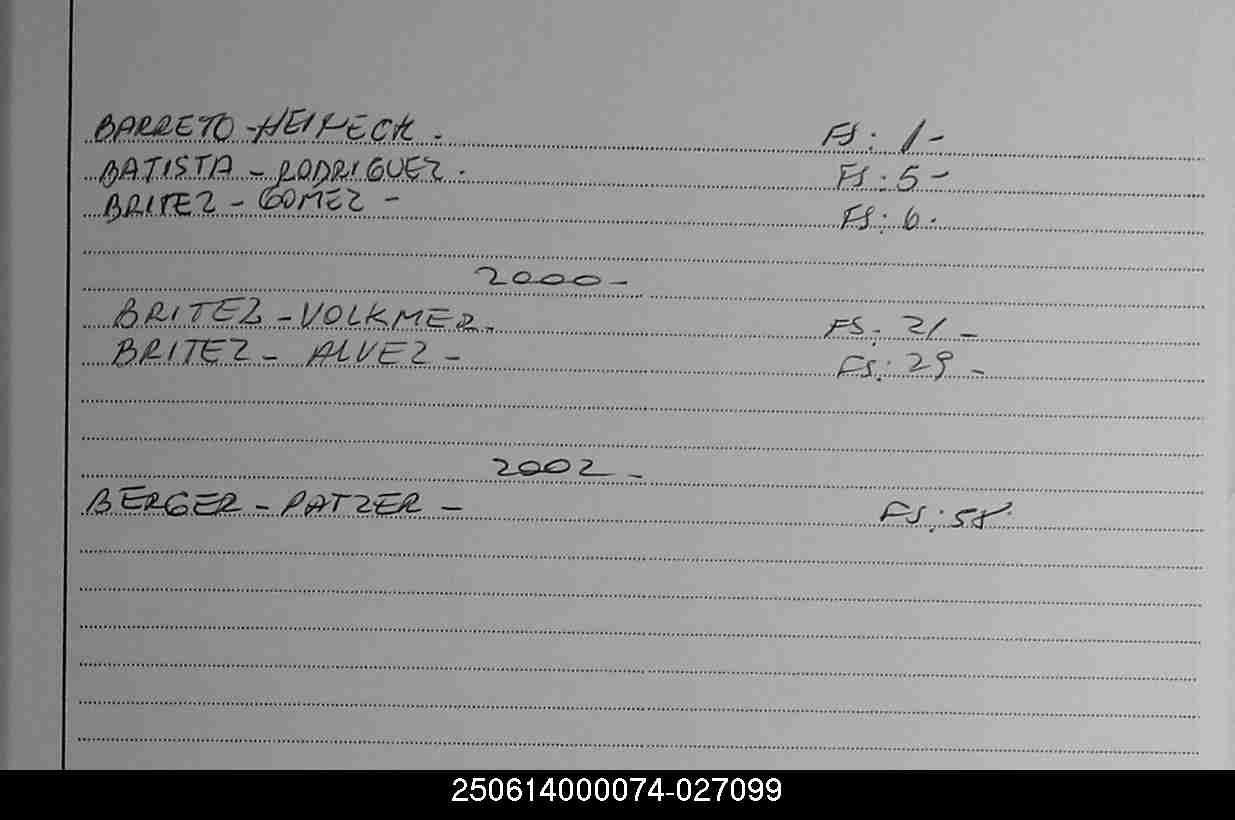 BARRETO - HEINECK - FS: 1 -
BATISTA - RODRIGUEZ - FS: 5 -
BRITEZ - GOMEZ - FS: 6.
2000 -
BRITEZ - VOLKMER - FS: 21 -
BRITEZ - ALVEZ - FS: 29 -
2002 -
BERGER - PATZER - FS: 58
250614000074-027099